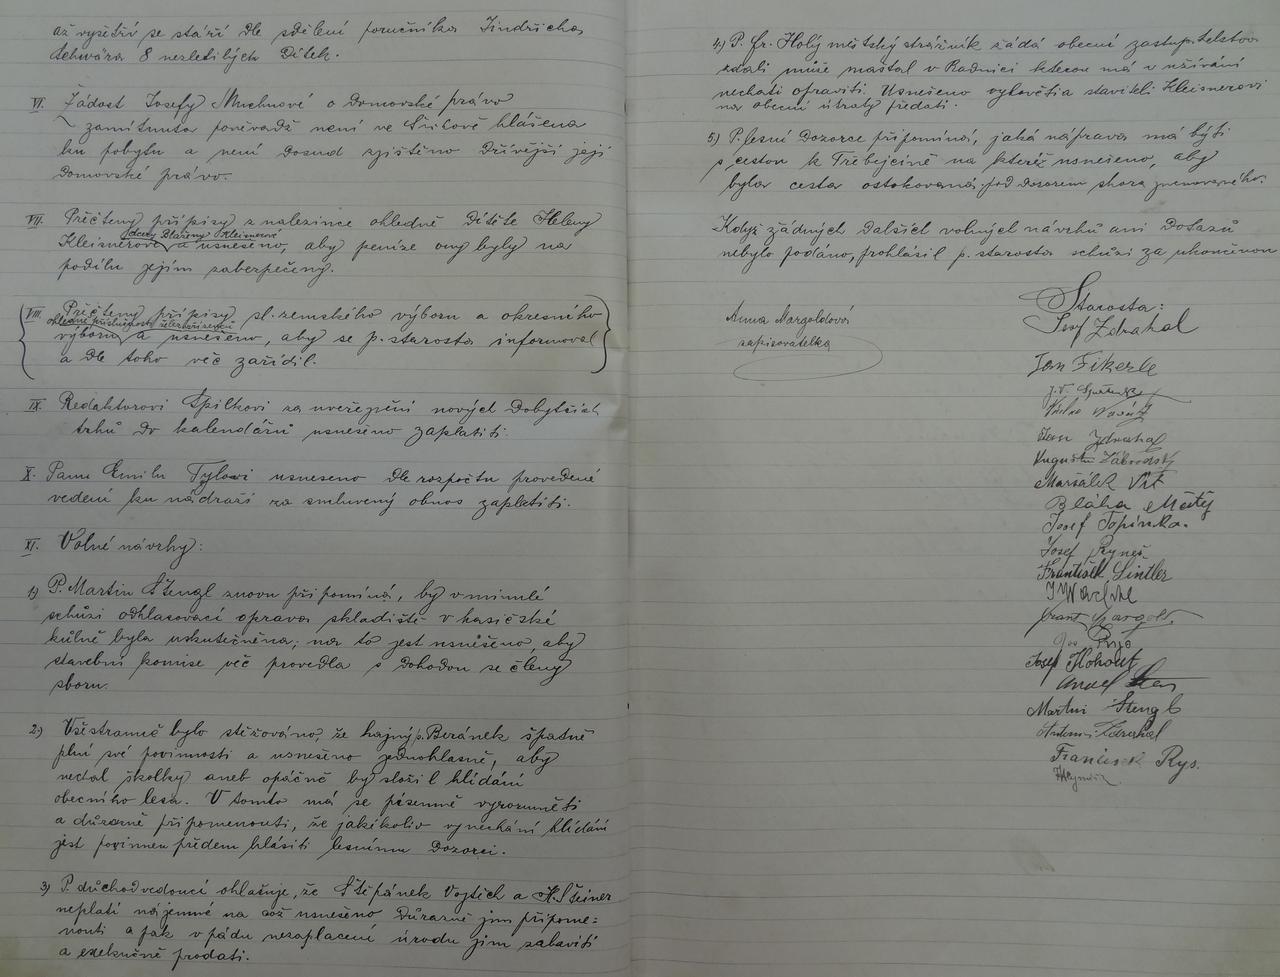 až vyšetří se stáří dle sdělení poručníka Jindřicha
Schwárza 8 nezletilých dítek.
VI. Žádost Josefy Muchnové o domovské právo
zamítnuta poněvadž není ve Stříbře hlášena
ku pobytu a není dosud zjištěno dřívější její
domovské právo.
VII. Přečteny přípisy z nalezince ohledně dítěte Heleny
dcery Blaženy Kleisnerové
Kleisnerové a usnešeno, aby peníze ony byly na
podílu jejím zabezpečeny.
VIII. Přečteny přípisy sl. zemského výboru a okresního
ohledně příslušnosti
výboru a usnešeno, aby se p. starosta informoval
a dle toho věc zařídil.
IX. Redaktorovi Špilkovi za uveřejnění nových dobytčích
trhů do kalendářů usnešeno zaplatiti.
X. Panu Emilu Tylovi usneseno dle rozpočtu provedené
vedení ku nádraží za smluvený obnos zaplatiti.
XI. Volné návrhy:
1) P. Martin Štengl znovu připomíná, by v minulé
schůzi odhlasovací oprava skladiště v hasičské
kůlně byla uskutečněna; na to jest usnešeno, aby
stavební komise věc provedla s dohodou se členy
sboru.
2.) Všestranně bylo stěžováno, že hajný p. Beránek špatně
plní své povinnosti a usnešeno jednohlasně, aby
nedal školky aneb opáčně by složil hlídání
obecního lesa. V tomto má se písemně vyrozuměti
a důrazně připomenouti, že jakékoliv vynechání hlídání
jest povinnen předem hlásiti lesnímu dozorci.
3) P. důchodvedoucí ohlašuje, že Štěpánek Vojtěch a K. Šteiner
neplatí nájemné na což usnešeno důrazně jim připome=
nouti a pak v pádu nezaplacení úrodu jim zabaviti
a exekučně prodati.
4) P. Fr. Holý městský strážník žádá obecní zastupitelstvo
zdali může maštal v Radnici kterou má v užívání
nechati opraviti. Usnešeno staviteli Kleisnerovi
na obecní útraty předati.
5) P. lesní dozorce připomíná, jaká náprava má býti
s cestou k Třebejčině na kteréž usnešeno, aby
byla cesta ostokovaná, pod dozorem shora jmenovaného.
Když žádných dalších volných návrhů ani dotazů
nebylo podáno, prohlásil p. starosta schůzi za ukončenou
Anna Margoldova
zapisovatelka
Starosta:
Josef Zdrahal
Jan Fikerle
Jan Zdrahal
Augustin Závodský
Maršálek Vít
Bláha Matěj
Josef Topinka.
Josef Ryneš
František Šintler
J Wachtl
Josef Kohout
Martin Štengl
Antonín Zdrahal
Francisek Rys.